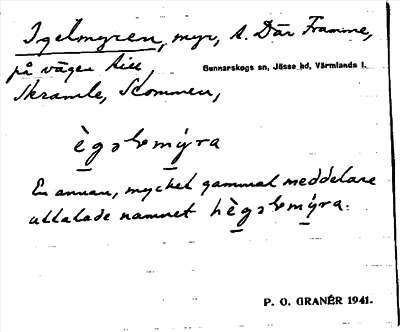 Igelmyren, myr, s. Där Framme,
på vägen till
Gunnarskogs sn, Jösse hd, Värmlands l.
Skramle, Slommen,
ègəɫmýra
En annan, mycket gammal meddelare
uttalade namnet hègəɫmýra.
P. O. GRANÉR 1941.